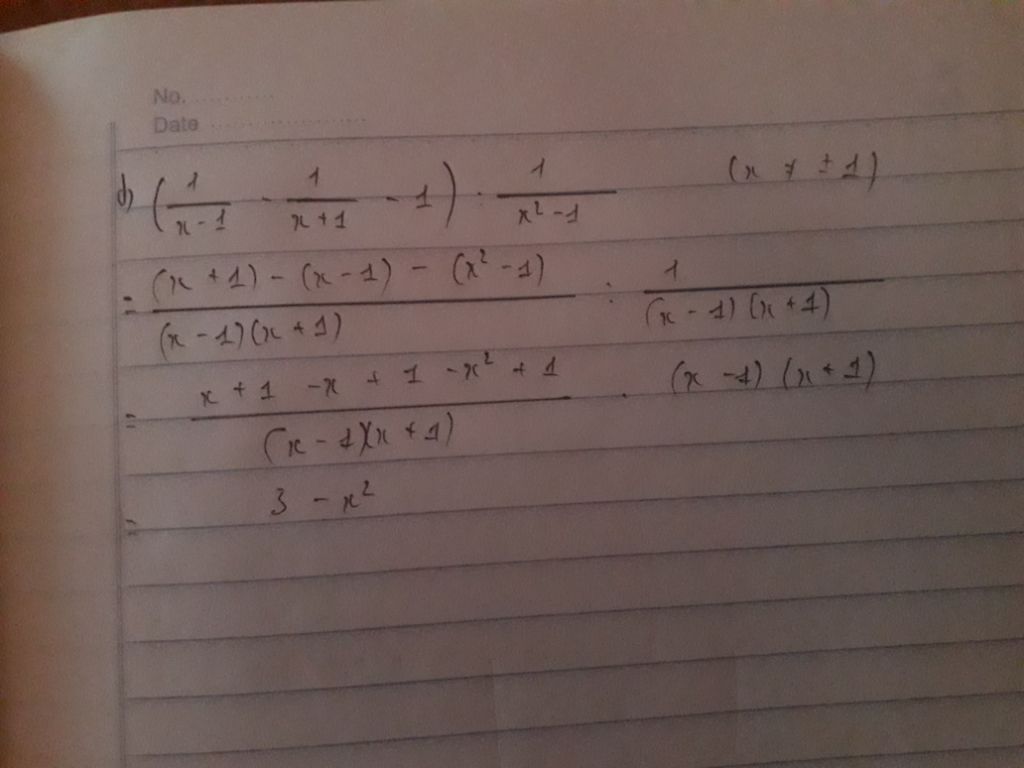 No. ............
Date .......................
d) (1/(x-1) - 1/(x+1) - 1) : 1/(x² - 1) (x ≠ ± 1)
= ((x + 1) - (x - 1) - (x² - 1))/((x - 1)(x + 1)) : 1/((x - 1)(x + 1))
= (x + 1 - x + 1 - x² + 1)/((x - 1)(x + 1)) . (x - 1) (x + 1)
= 3 - x²